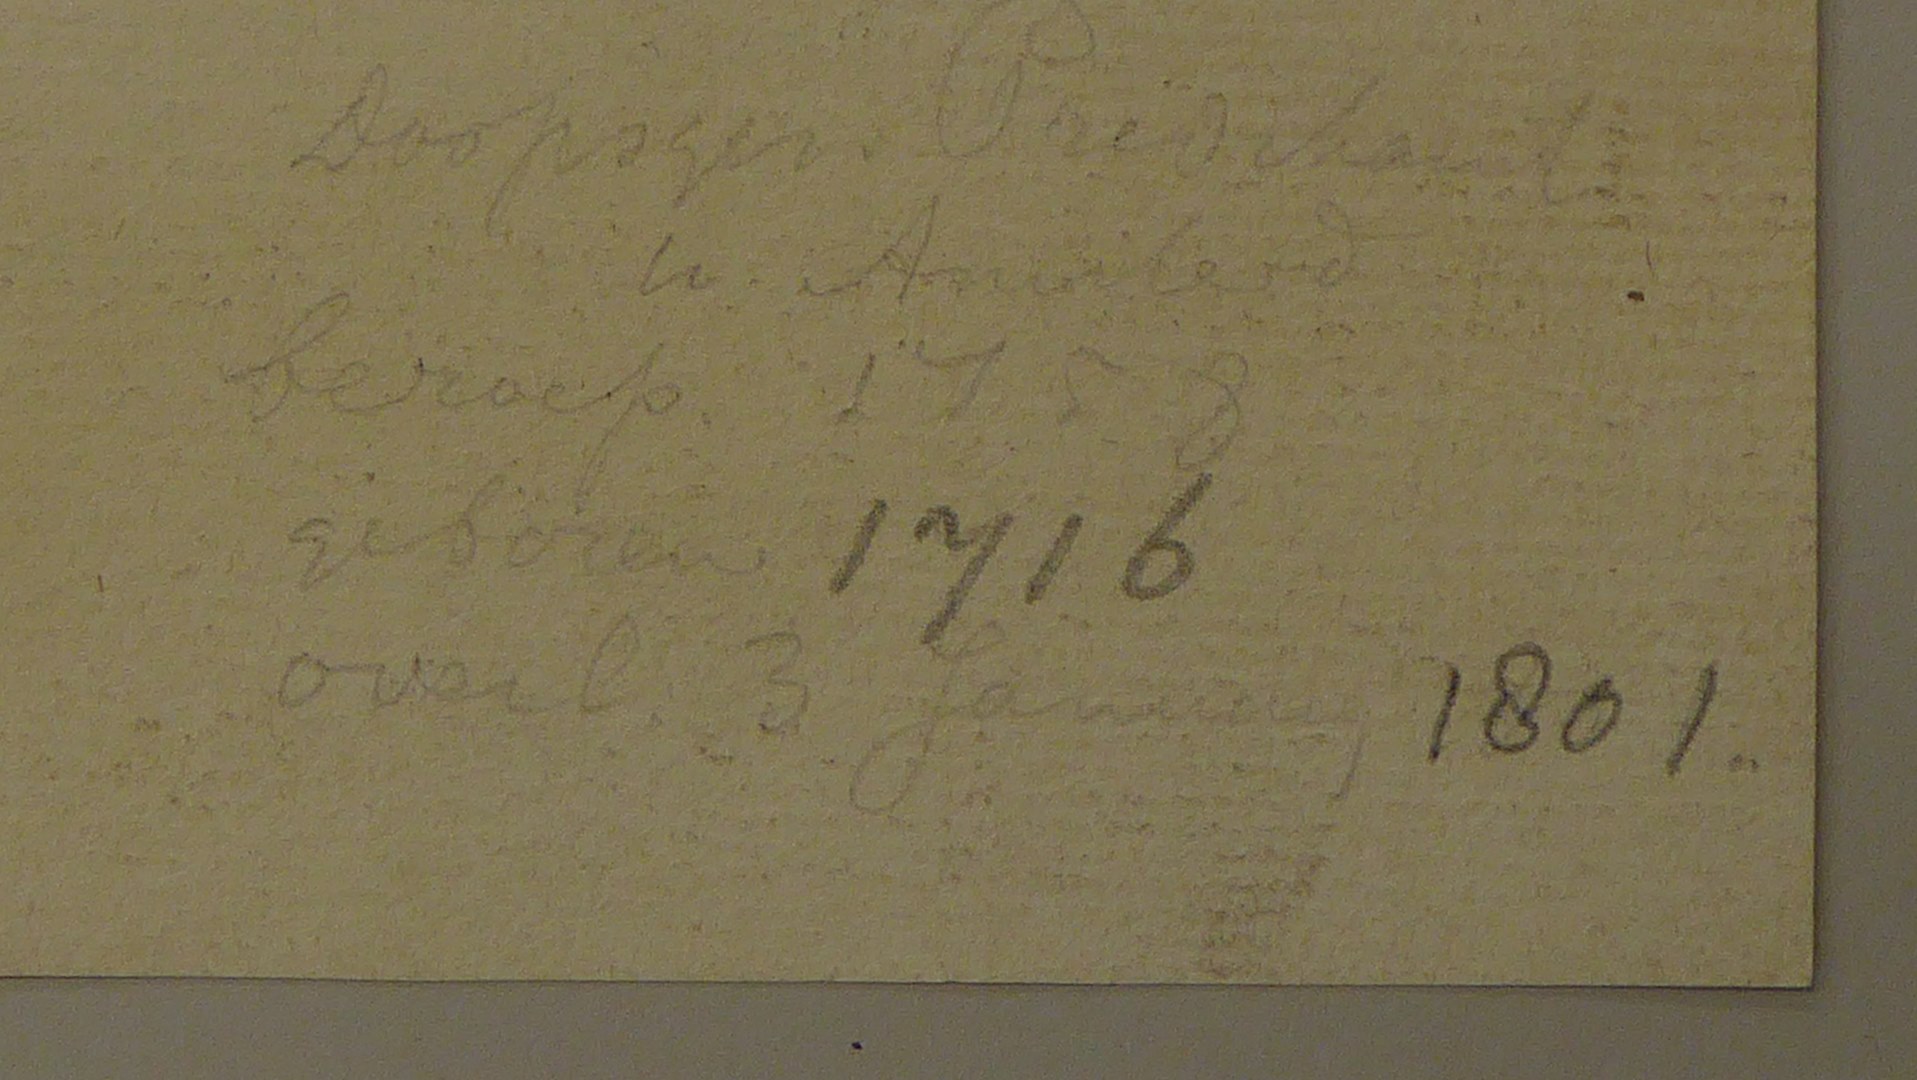 Doopsgez. Predikant
te Amsterd
beroep. 1758
geboren 1716
overl. 3 January 1801.